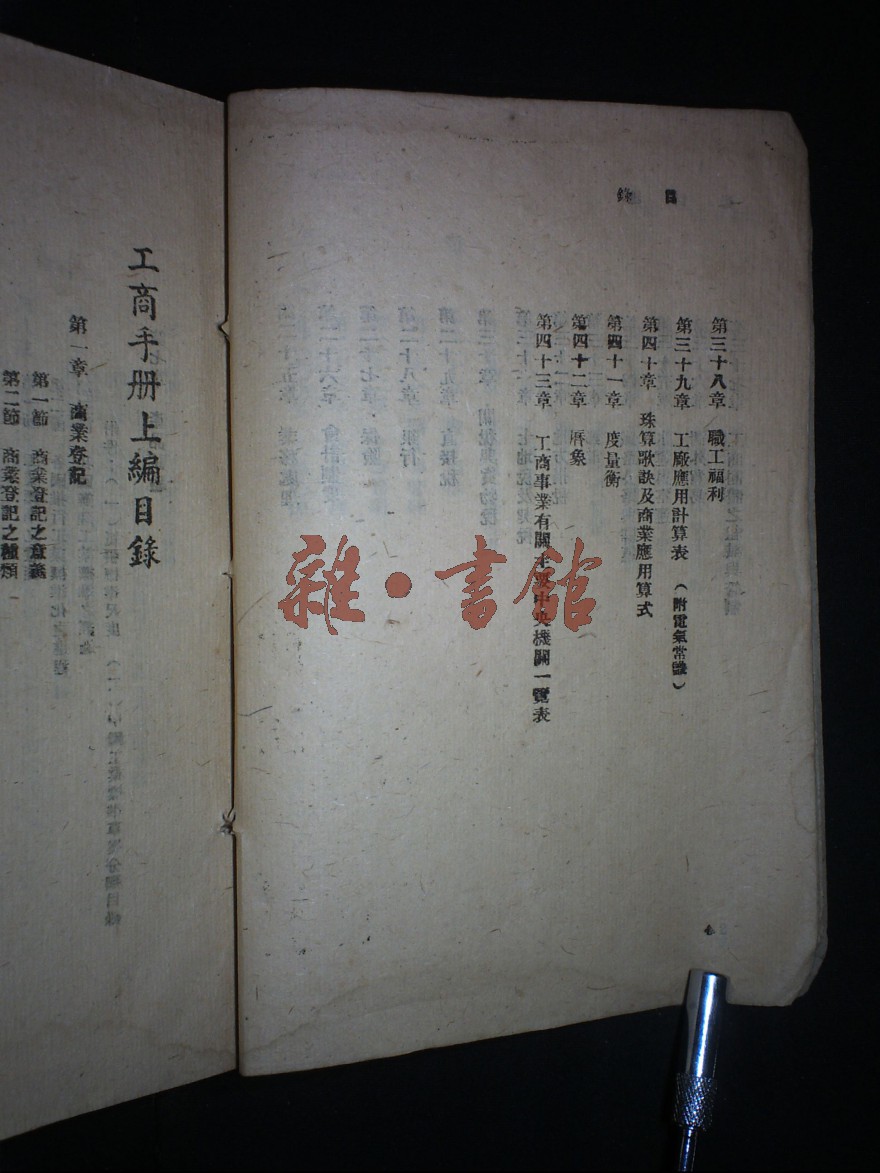 目錄
第三十八章 職工福利
第三十九章 工廠應用計算表（附電氣常識）
第四十章 珠算歌訣及商業應用算式
第四十一章 度量衡
第四十二章 曆象
第四十三章 工商事業有關主要中央機關一覽表
4
工商手册上編目錄
第一章 商業登記
第一節 商業登記之意義
第二節 商業登記之種類
雜·書館